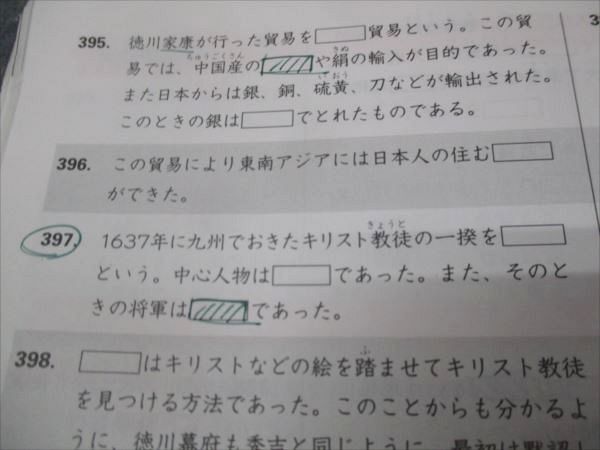 395. 徳川家康が行った貿易を□貿易という。この貿
易では、中国産の□や絹の輸入が目的であった。
また日本からは銀、銅、硫黄、刀などが輸出された。
このときの銀は□でとれたものである。
396. この貿易により東南アジアには日本人の住む□
ができた。
397. 1637年に九州でおきたキリスト教徒の一揆を□
という。中心人物は□であった。また、そのと
きの将軍は□であった。
398. □はキリストなどの絵を踏ませてキリスト教徒
を見つける方法であった。このことからも分かるよ
うに、徳川幕府も秀吉と同じように、最初は黙認し